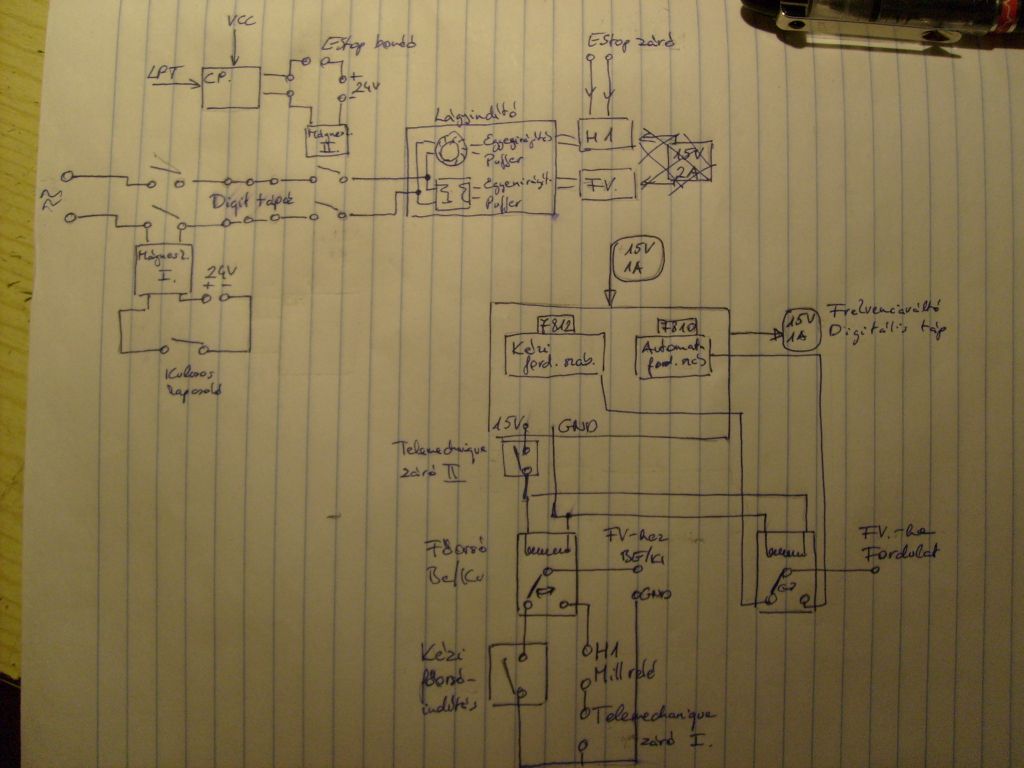 VCC
EStop bontó
LPT
CP.
+
24V
-
Mágnesk.
II
EStop záró
Lágyindító
Egyenirányítás
Puffer
H1
15V
2A
Egyenirányít.
Puffer
FV.
Digit tápok
Mágnesk.
I.
24V
+ -
Kulcsos
kapcsoló
15V
1A
7812
Kézi
ford. szab.
7810
Automati
ford. szab
15V
1A
Frekvenciaváltó
Digitális táp
15V
GND
Telemechanique
záró II
Főorsó
Be/Ki
FV-hez
BE/Ki
GND
FV.-hez
Fordulat
Kézi
főorsó-
indítás
H1
Mill relé
Telemechanique
záró I.